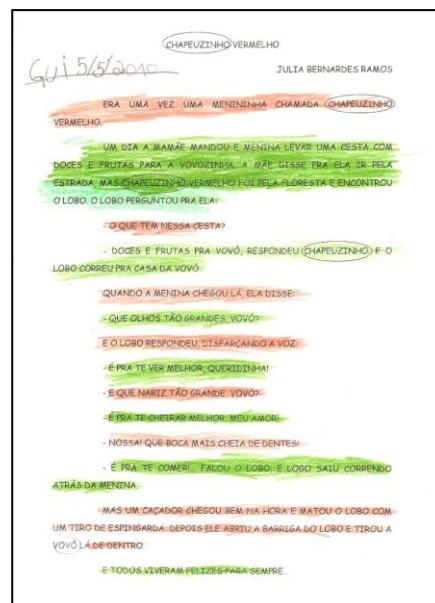 CHAPEUZINHO VERMELHO
Gui 5/5/2010
JULIA BERNARDES RAMOS
ERA UMA VEZ UMA MENININHA CHAMADA CHAPEUZINHO
VERMELHO.
UM DIA A MAMÃE MANDOU E MENINA LEVAR UMA CESTA COM
DOCES E FRUTAS PARA A VOVOZINHA. A MÃE DISSE PRA ELA IR PELA
ESTRADA, MAS CHAPEUZINHO VERMELHO FOI PELA FLORESTA E ENCONTROU
O LOBO. O LOBO PERGUNTOU PRA ELA:
- O QUE TEM NESSA CESTA?
- DOCES E FRUTAS PRA VOVÓ, RESPONDEU CHAPEUZINHO E O
LOBO CORREU PRA CASA DA VOVÓ.
QUANDO A MENINA CHEGOU LÁ, ELA DISSE:
- QUE OLHOS TÃO GRANDES, VOVÓ?
E O LOBO RESPONDEU, DISFARÇANDO A VOZ:
- É PRA TE VER MELHOR, QUERIDINHA!
- E QUE NARIZ TÃO GRANDE, VOVÓ?
- É PRA TE CHEIRAR MELHOR, MEU AMOR!
- NOSSA! QUE BOCA MAIS CHEIA DE DENTES!
- É PRA TE COMER!, FALOU O LOBO, E LOGO SAIU CORRENDO
ATRÁS DA MENINA.
MAS UM CAÇADOR CHEGOU BEM NA HORA E MATOU O LOBO COM
UM TIRO DE ESPINGARDA. DEPOIS ELE ABRIU A BARRIGA DO LOBO E TIROU A
VOVÓ LÁ DE DENTRO.
E TODOS VIVERAM FELIZES PARA SEMPRE.